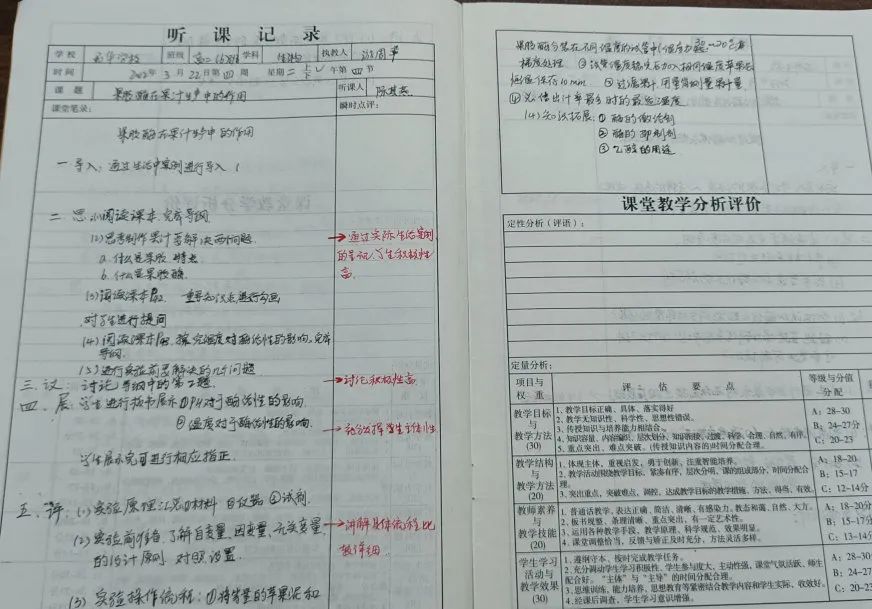 听课记录
学校 班级 高二(6)班 学科 生物 执教人
时间 年3月22日第四周 星期二 上 下 午第四节
课题 果胶酶在果汁生产中的作用 听课人 陈其燕
课堂笔录: 瞬时点评:
果胶酶在果汁生产中的作用
一 导入: 通过生活中案例进行导入
二 思 阅读课本 完成导纲
(2)思考制作果汁要解决两问题.
a. 什么是果胶 特点
b. 什么是果胶酶.
→通过实际生活案例
的 学生积极性
高.
(3)阅读课本 重要知识点进行勾画
对学生进行提问
(4)阅读课本 探究温度对酶活性的影响,完成
导纲.
(5)进行实验前要解决的几个问题
三. 议: 讨论导纲中的第2题.
→讨论积极性高
四. 展: 学生进行板书展示①PH对于酶活性的影响.
②温度对于酶活性的影响.
→充分发挥学生主体性
学生展示完可进行相应指正.
五. 评: (1)实验原理 ①材料 ②仪器 ③试剂.
(2)实验前准备,了解自变量,因变量,无关变量,
的设计原则 对照设置.
→讲解具体流程比
较详细
(3)实验操作流程:①将等量的苹果泥和
果胶酶分装在不同温度的试管中(温度为
梯度处理 ②试管温度稳定后加入相同温度苹果泥
恒温保存10min ③过滤果汁 用量筒测量果汁量
④ 得出汁率最多时的最适温度
(4)知识拓展: ①酶的激活剂
②酶的抑制剂
③乙醇的用途
课堂教学分析评价
定性分析(评语):
定量分析:
项目与权重 评估要点 等级与分值分配
教学目标与教学方法(30)
1、教学目标正确、具体、落实得好
2、教学无知识性、科学性、思想性错误。
3、传授知识与培养能力相结合。
4、知识容量、内容编织、层次划分、知识衔接、过渡、科学、合理、自然、有序。
5、重点突出、难点突破。(传授知识内容的)时间分配合理。
A:28-30
B:24-27分
C:20-23
教学结构与教学方法(20)
1、体现主体,重视启发,勇于创新,注重智能培养。
2、教学活动围绕教学目标,紧凑有序,层次分明,课的组成部分,时间分配合理。
3、突出重点,突破难点,调控,达成教学目标的教学措施、方法、得当、有效。
A:18-20
B:15-17
C:12-14分
教师素养与教学技能(20)
1、普通话教学,表达正确、简洁、清晰、有感染力。教态和蔼、自然、大方。
2、板书规整、条理清晰、重点突出,有一定艺术性。
3、运用各种教学手段,教学原理、科学规范、效果明显。
4、课堂调整恰当,反馈与矫正及时充分、方法灵活多样。
A:18-20分
B:15-17分
C:13-14分
学生学习活动与教学效果(30)
1、遵纲守本、按时完成教学任务。
2、充分调动学生学习积极性,学生参与度大、主动性强、课堂气氛活跃、师生配合好。“主体”与“主导”的时间分配合理。
3、思维训练、能力培养、思想教育等紧密结合教学内容和学生实际、收效好。
4、经课后调查、学生学习意识增强。
A:28-30分
B:24-27
C:20-23